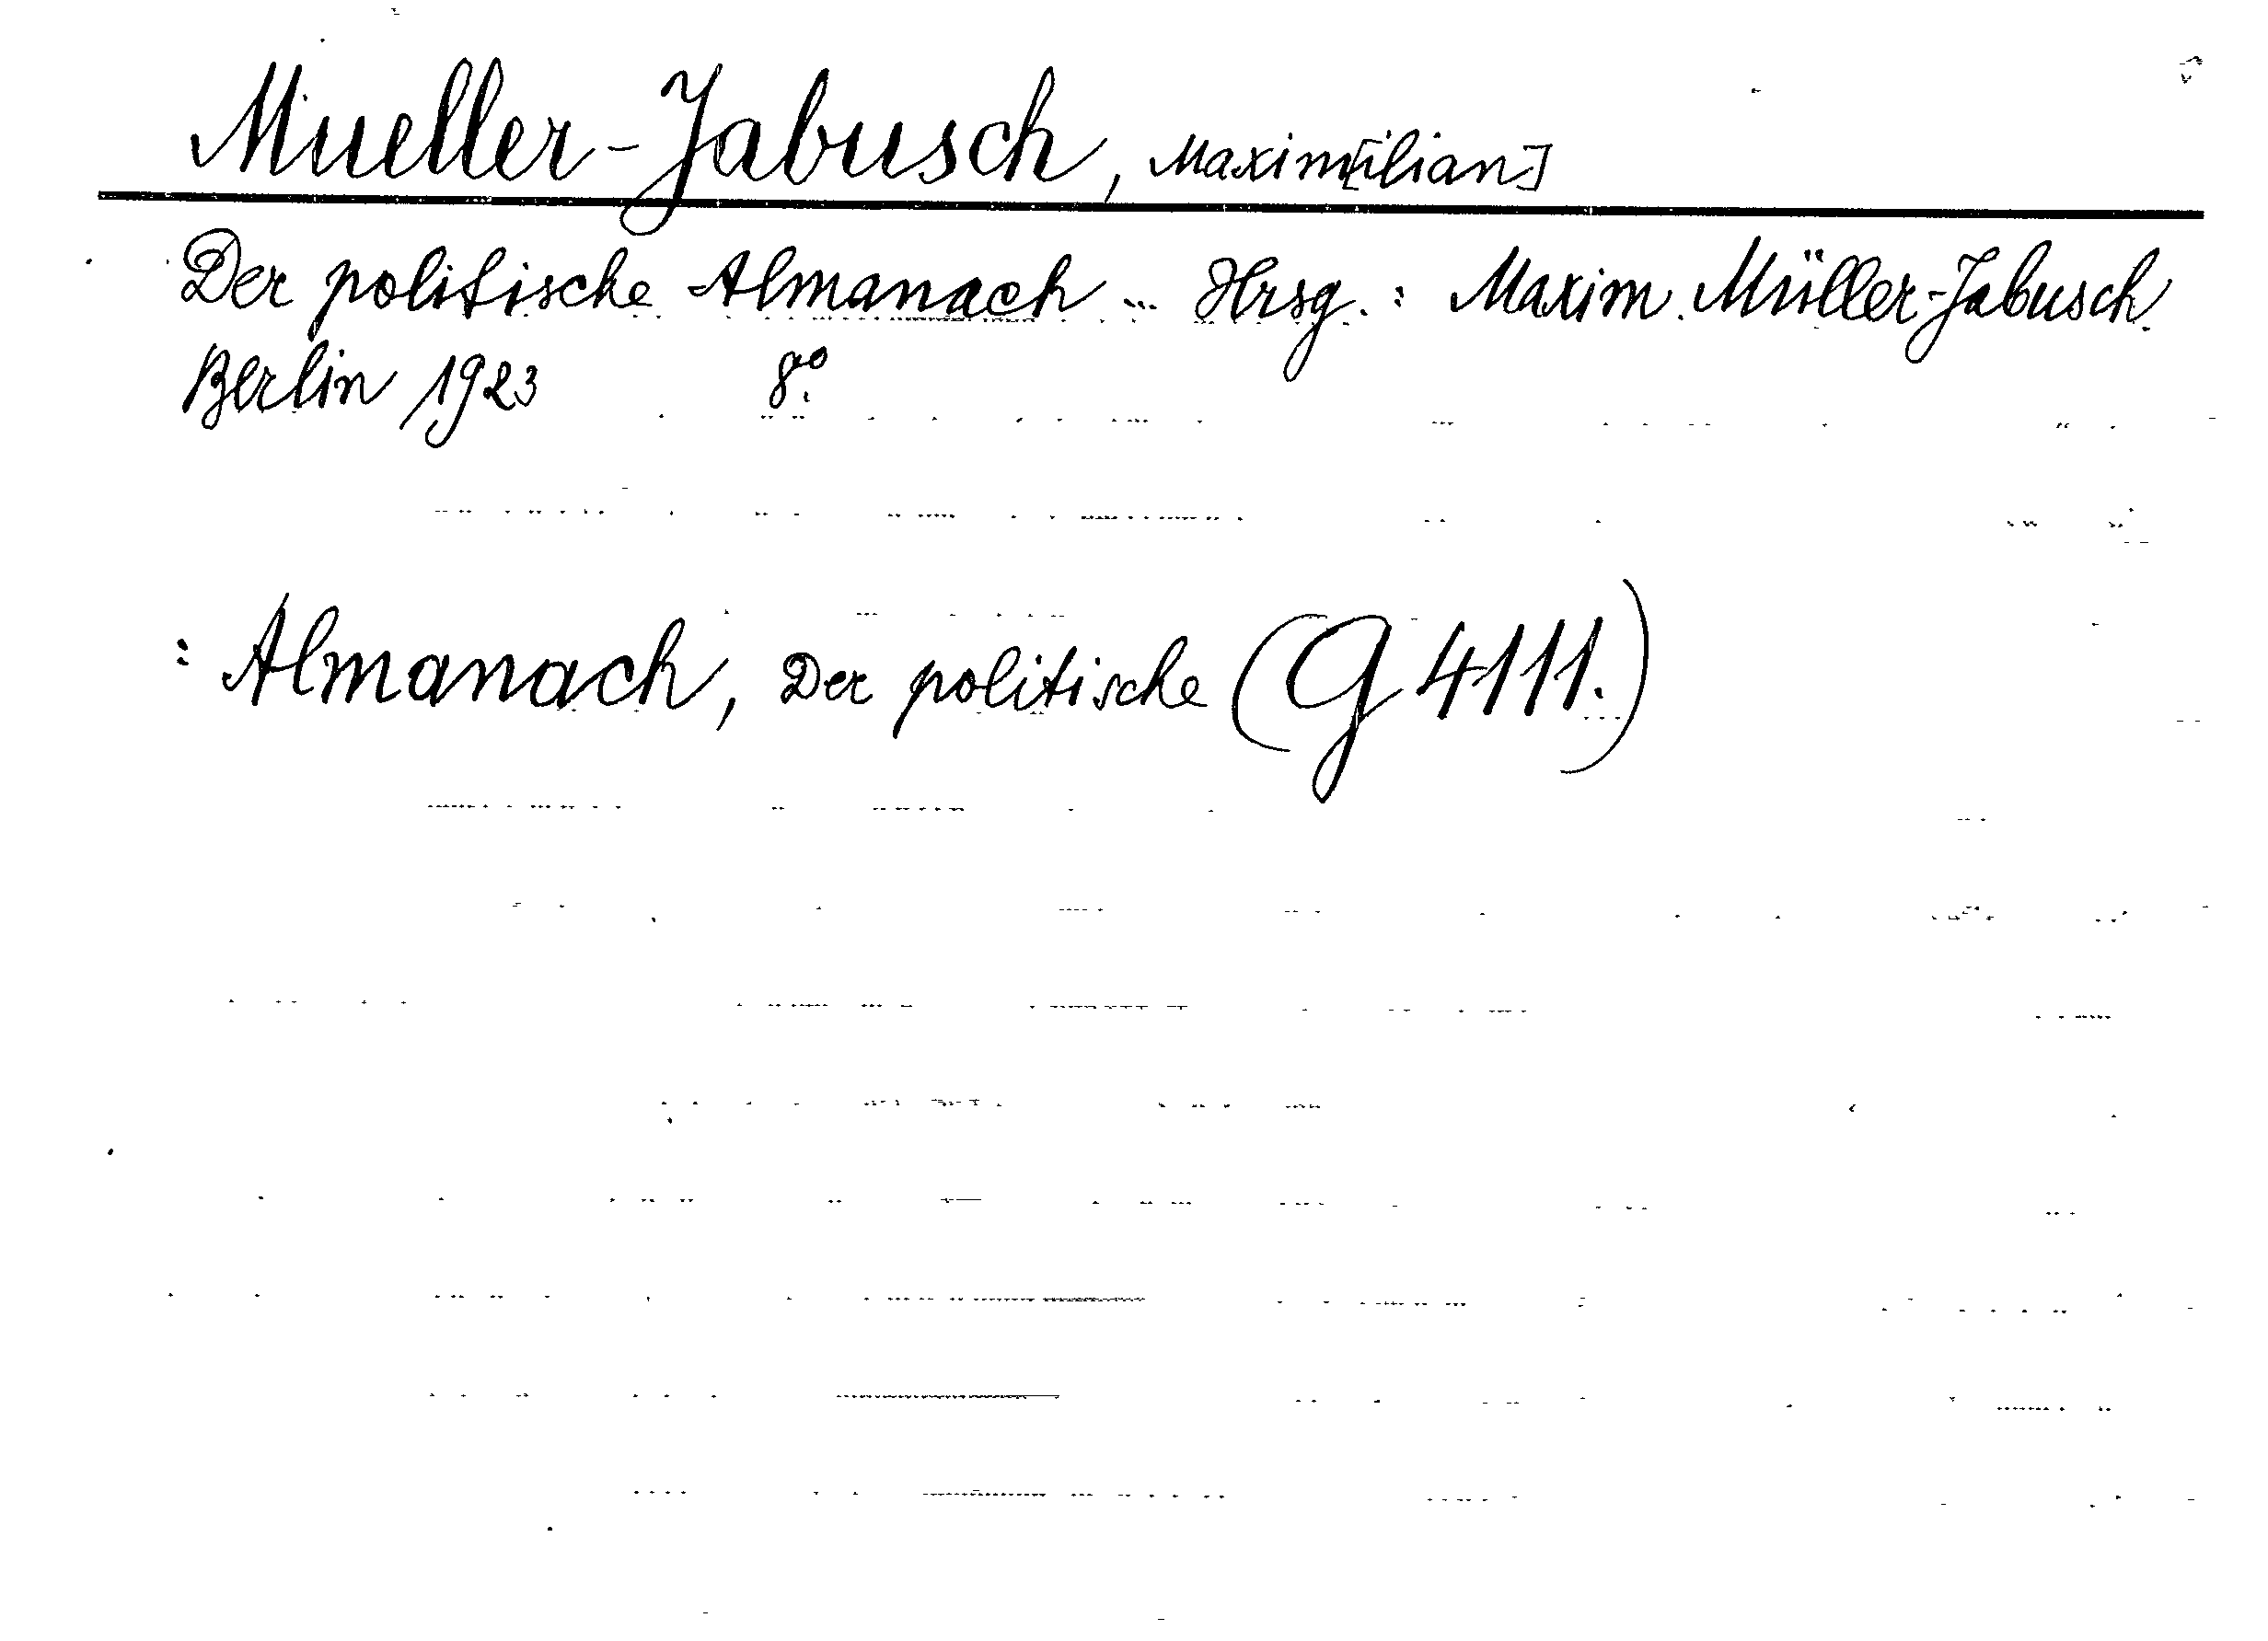 Mueller-Jabusch, Maxim[ilian]
Der politische Almanach ... Hrsg.: Maxim. Müller-Jabusch.
Berlin 1923 8°.
: Almanach, Der politische (G 4111.)